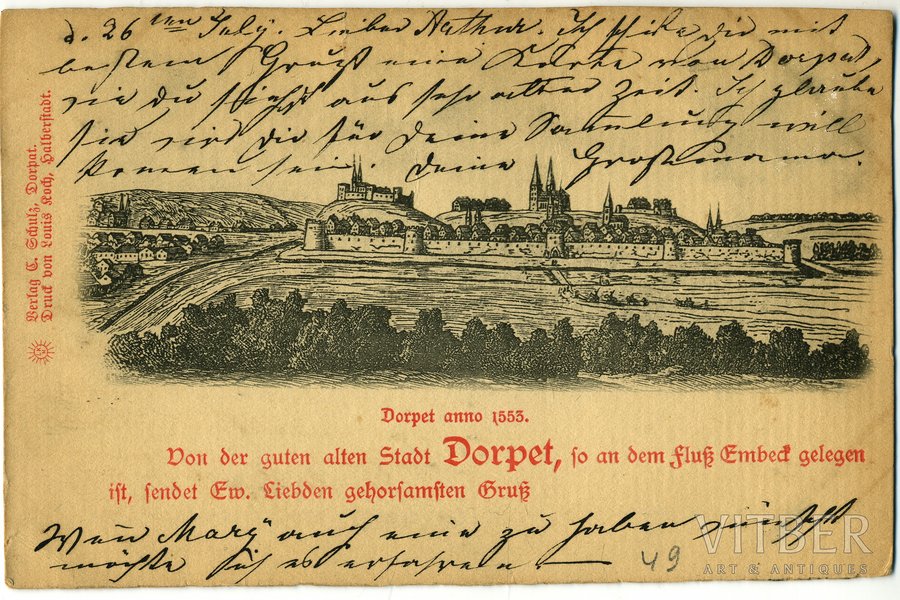 d. 26ten July. Lieber Arthur. Ich schicke dir mit
bestem Gruß eine Karte von Dorpat,
wie du siehst aus sehr alter Zeit. Ich glaube
sie wird dir für deine Samlung will
komen sein. Deine Großmama.
Verlag C. Schulz, Dorpat.
Druck von Louis Koch, Halberstadt.
Dorpet anno 1553.
Von der guten alten Stadt Dorpet, so an dem Fluß Embeck gelegen
ist, sendet Ew. Liebden gehorsamsten Gruß
Wen Mary auch eine zu haben wünscht
möchte ich es erfahren —
49
VITBER
ART & ANTIQUES